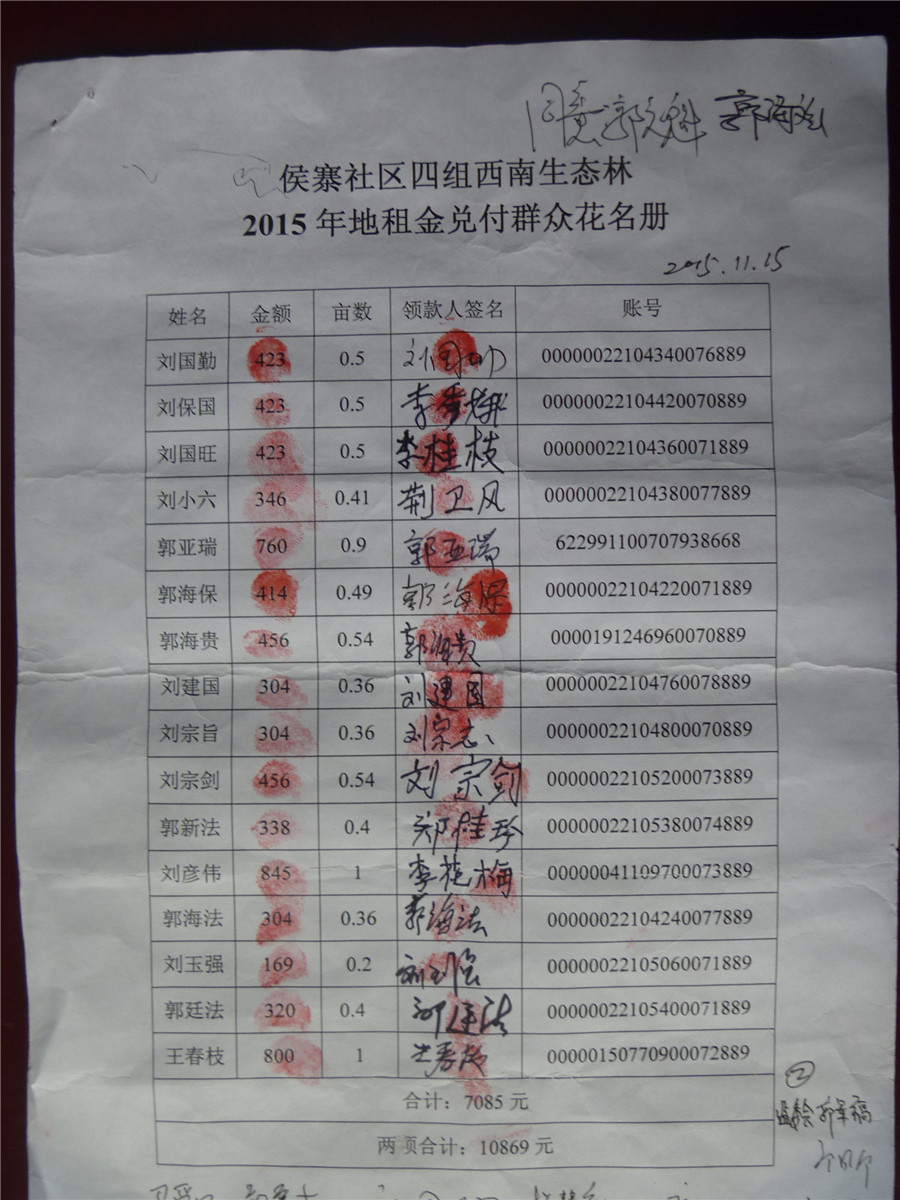 同意 郭文科 郭海法
侯寨社区四组西南生态林
2015年地租金兑付群众花名册
2015.11.15
姓名 金额 亩数 领款人签名 账号
刘国勤 423 0.5 00000022104340076889
刘保国 423 0.5 李秀梅 00000022104420070889
刘国旺 423 0.5 李桂枝 00000022104360071889
刘小六 346 0.41 荆卫风 00000022104380077889
郭亚瑞 760 0.9 郭亚瑞 622991100707938668
郭海保 414 0.49 郭海保 00000022104220071889
郭海贵 456 0.54 郭海贵 0000191246960070889
刘建国 304 0.36 刘建国 00000022104760078889
刘宗旨 304 0.36 刘宗志 00000022104800070889
刘宗剑 456 0.54 刘宗剑 00000022105200073889
郭新法 338 0.4 郑桂珍 00000022105380074889
刘彦伟 845 1 李花梅 00000041109700073889
郭海法 304 0.36 郭海法 00000022104240077889
刘玉强 169 0.2 刘玉强 00000022105060071889
郭廷法 320 0.4 00000022105400071889
王春枝 800 1 王春枝 00000150770900072889
合计：7085 元
②
两项合计：10869 元